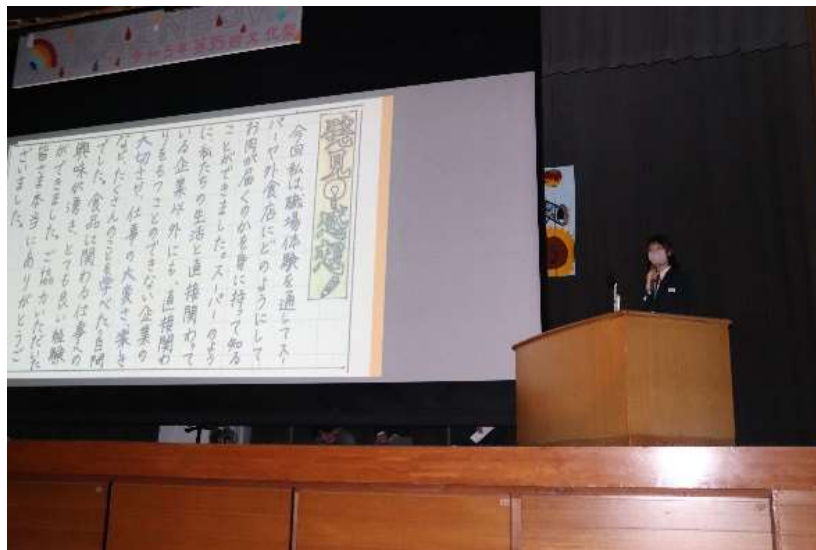 令和5年度第35回文化祭
発見・感想
今回私は職場体験を通してスー
パーや外食店にどのようにして
お肉が届くのかを身に持って知る
ことができました。スーパーのよう
に私たちの生活と直接関わって
いる企業以外にも、直接関わ
りをもつことのできない企業の
大切さ、仕事の大変さ、楽しさ
など、たくさんのことを学べた3日間
でした。食品に関わる仕事への
興味が湧き、とても良い経験
ができました。ご協力いただいた
皆さま本当にありがとうご
ざいました。